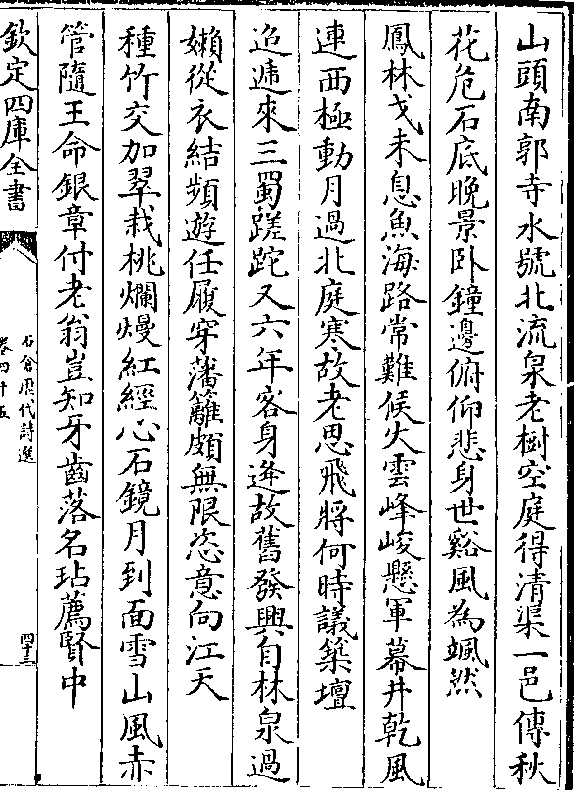 山頭南郭寺水號北流泉老樹空庭得清渠一邑傳秋
花危石底晚景卧鐘邊俯仰悲身世谿風為颯然
鳳林戈未息魚海路常難候火雲峰峻懸軍幕井乾風
連西極動月過北庭寒故老思飛將何時議築壇
迢遞來三蜀蹉跎又六年客身逢故舊發興自林泉過
嬾從衣結頻遊任履穿藩籬頗無限恣意向江天
種竹交加翠栽桃爛熳紅經心石鏡月到面雪山風赤
管隨王命銀章付老翁豈知牙齒落名玷薦賢中
欽定四庫全書
石倉歷代詩選
卷四十五
四十三